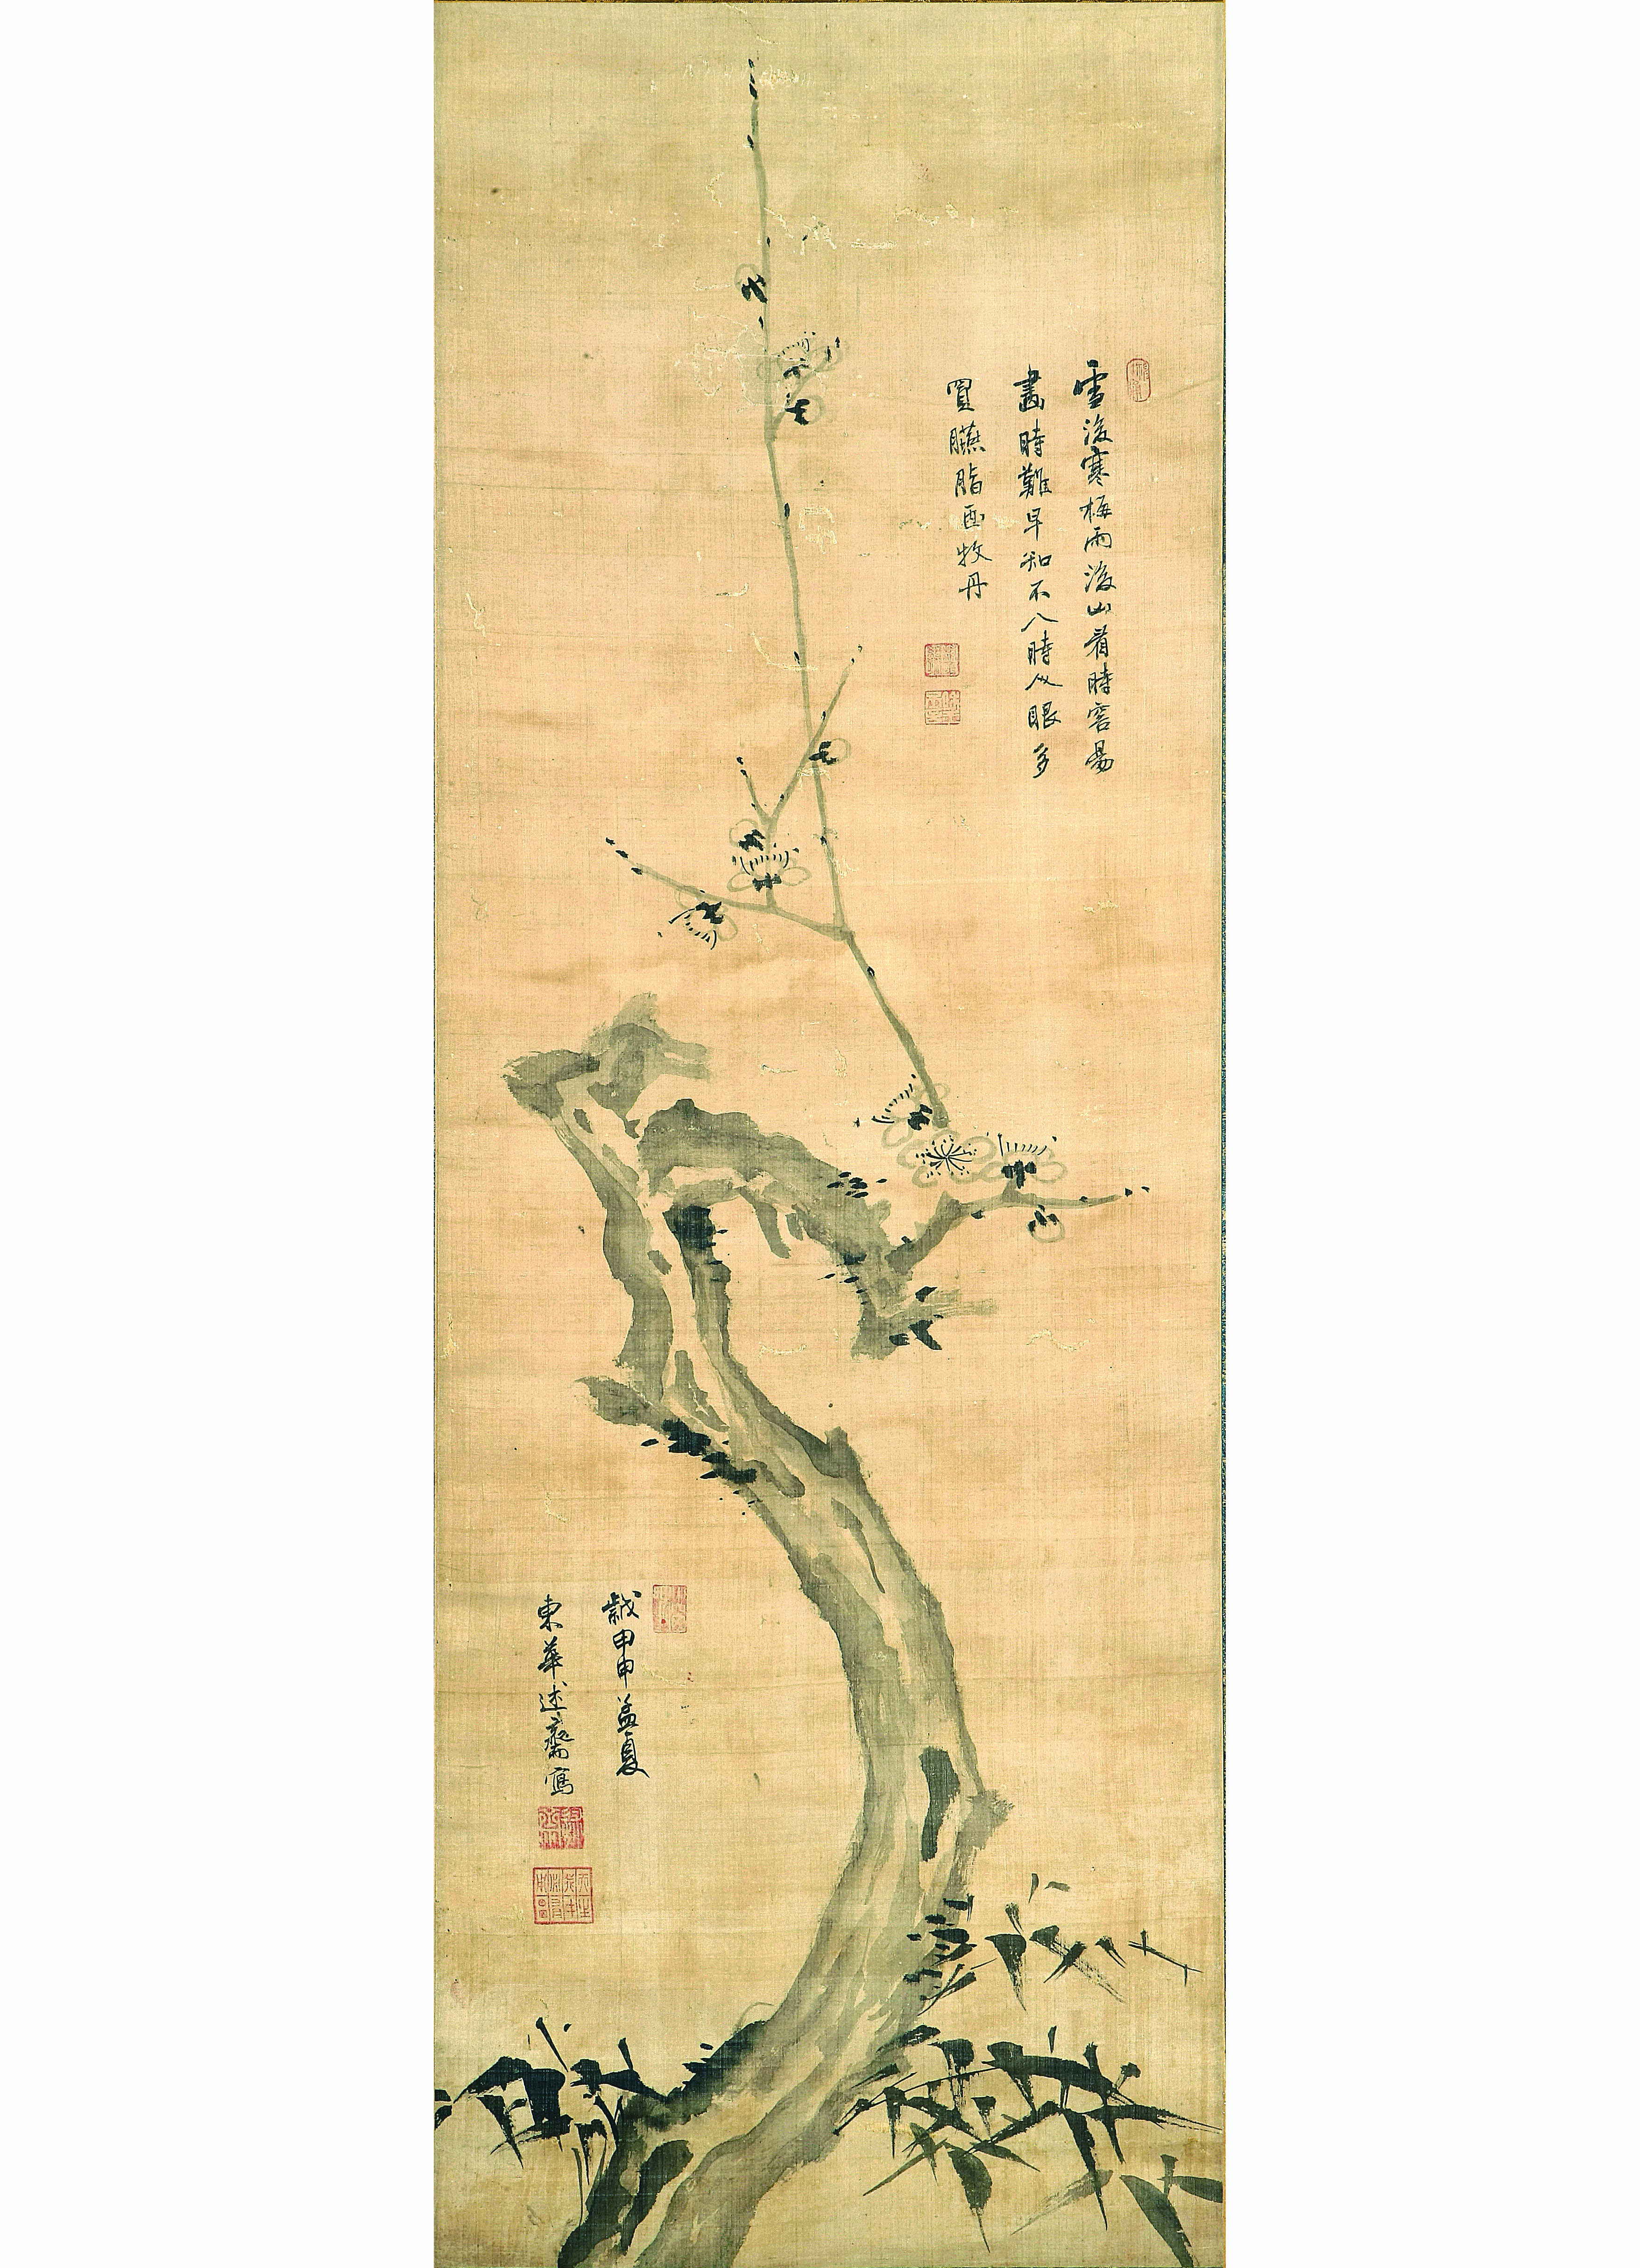 雪後寒梅雨後山看時容易
畫時難早知不入時人眼多
買臙脂画牧丹
歲甲申孟夏
東華述齋寫